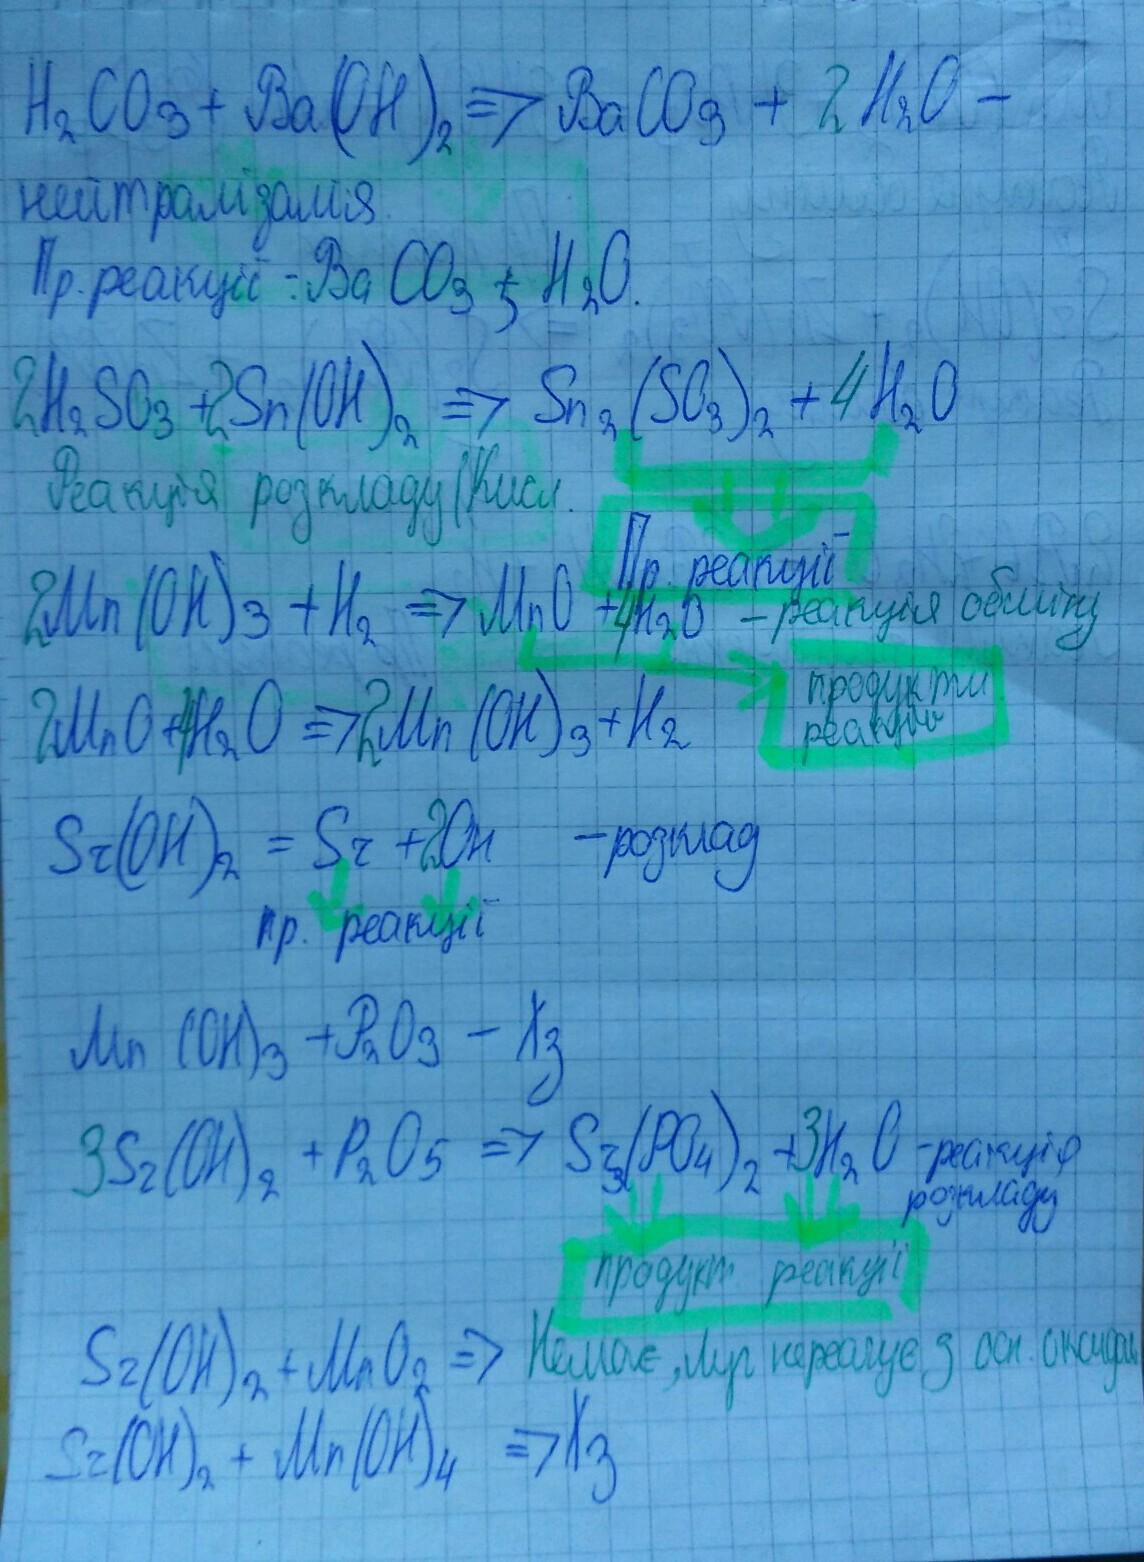 H₂CO₃ + Ba(OH)₂ => BaCO₃ + 2H₂O –
нейтралізація
Пр. реакції: BaCO₃ + H₂O.
2H₂SO₃ + 2Sn(OH)₂ => Sn₂(SO₃)₂ + 4H₂O
Реакція розкладу (Кисл.
Пр. реакції
2Mn(OH)₃ + H₂ => MnO + 4H₂O – реакція обміну
продукти
реакцій
2MnO + 4H₂O => 2Mn(OH)₃ + H₂
Sr(OH)₂ = Sr + 2OH – розклад
пр. реакції
Mn(OH)₃ + P₂O₃ – Хз
3Sr(OH)₂ + P₂O₅ => Sr₃(PO₄)₂ + 3H₂O – реакція
розкладу
продукт реакції
Sr(OH)₂ + MnO₂ => Немає, Луг не реагує з осн. оксидам
Sr(OH)₂ + Mn(OH)₄ => Хз